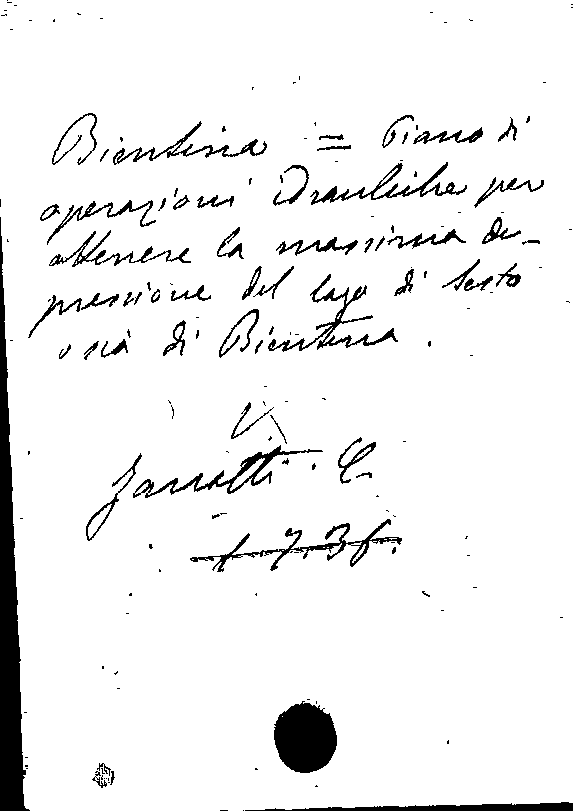 Bientina = Piano di
operazioni idrauliche per
ottenere la massima de-
pressione del lago di Sesto
ossia di Bientina.
V.
Zannotti. C.
1.7.36.